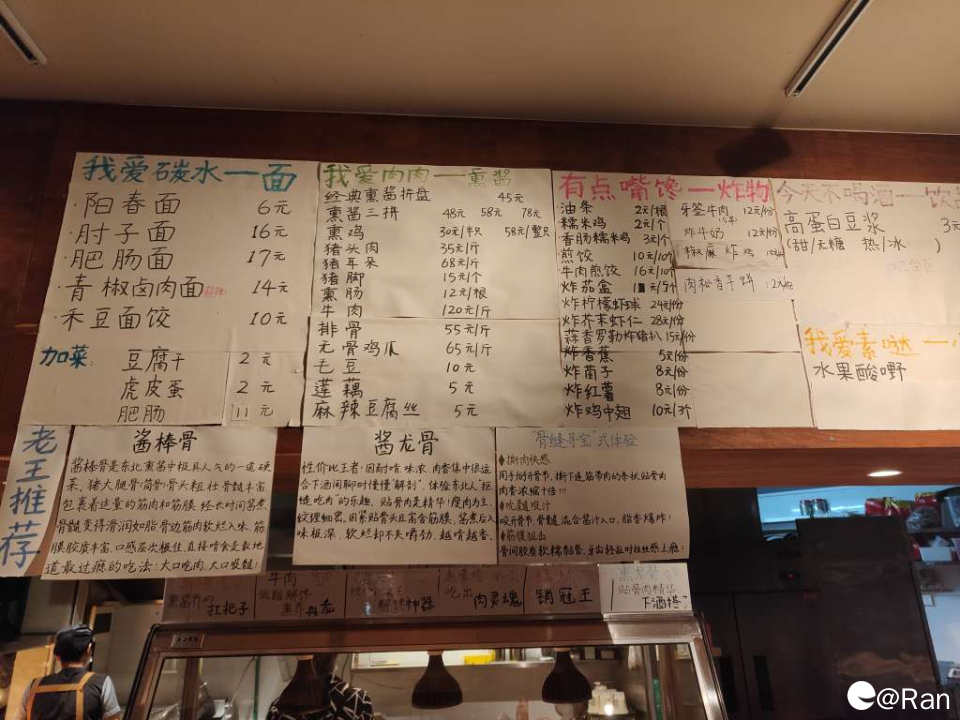 我爱碳水一面
·阳春面 6元
·肘子面 16元
·肥肠面 17元
·青椒卤肉面 14元
·禾豆面饺 10元
加菜: 豆腐干 2元
虎皮蛋 2元
肥肠 11元
我爱肉肉一熏酱
经典熏酱折盘 45元
熏酱三拼 48元 58元 78元
熏鸡 30元/半只 58元/整只
猪头肉 35元/斤
猪耳朵 68元/斤
猪脚 15元/个
熏肠 12元/根
牛肉 120元/斤
排骨 55元/斤
无骨鸡爪 65元/斤
毛豆 10元
莲藕 5元
麻辣豆腐丝 5元
有点嘴馋一炸物
油条 2元/根
糯米鸡 2元/个
香肠糯米鸡 3元/个
煎饺 10元/10个
牛肉煎饺 16元/10个
炸茄盒
炸柠檬虾球 24元/份
炸芥末虾仁 28元/份
蒜香罗勒炸猪扒 15元/份
炸香蕉 5元/份
炸蘑子 8元/份
炸红薯 8元/份
炸鸡中翅 10元/3个
牙签牛肉 12元/份
炸牛奶 12元/份
椒麻炸鸡
肉松香芋饼 12元/份
今天不喝酒一饮
高蛋白豆浆 3元
(甜/无糖 热/冰 )
我爱素哒一
水果酸嘢
老王推荐
酱棒骨
酱棒骨是东北熏酱中极具人气的一道硬
菜,猪大腿骨(筒骨)骨头粗壮骨髓丰富
包裹着适量的筋肉和筋膜,经长时间酱煮
骨髓变得滑润如脂骨边筋肉软烂入味,筋
膜胶质丰富、口感层次极佳,直接啃食是最地
道最过瘾的吃法!大口吃肉大口嗦髓!
酱龙骨
性价比王者!因耐啃味浓、肉香集中很适
合下酒闲聊时慢慢"解剖",体验东北人"抠
缝吃肉"的乐趣、贴骨肉是精华!瘦肉为主,
纹理细密。因紧贴骨头且富含筋膜,酱煮后入
味极深、软烂却不失嚼劲,越啃越香。
"骨缝寻宝"式体验
♦撕肉快感
用手掰开骨节,撕下连筋带肉的条状贴骨肉
肉香浓缩十倍!!
♦吮髓吸汁
咬开骨节,骨髓混合酱汁入口,脂香爆炸!
♦筋膜拉丝
骨间胶质软糯黏唇,牙齿轻扯时拉丝感上瘾!
扛把子
牛肉
解馋神器
肉灵魂
销冠王
贴骨肉精华
下酒搭
@Ran